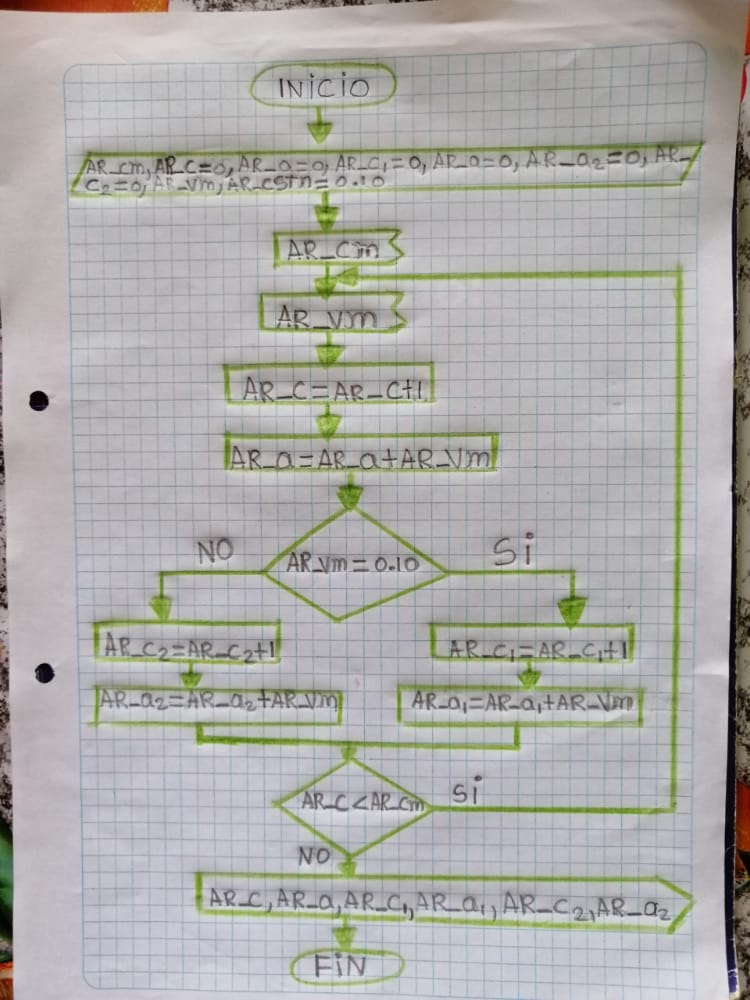 INICIO
AR_cm, AR_c=0, AR_a=0, AR_c₁=0, AR_a=0, AR_a₂=0, AR_
c₂=0, AR_vm, AR_cstn=0.10
AR_cm
AR_vm
AR_c=AR_c+1
AR_a=AR_a+AR_vm
NO
AR_vm=0.10
Si
AR_c₂=AR_c₂+1
AR_c₁=AR_c₁+1
AR_a₂=AR_a₂+AR_vm
AR_a₁=AR_a₁+AR_vm
AR_c<AR_cm
Si
NO
AR_c, AR_a, AR_c₁, AR_a₁, AR_c₂, AR_a₂
FiN